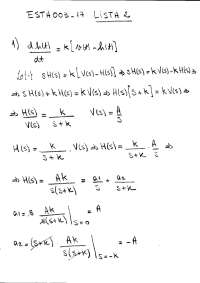 ESTA003-17 LISTA 2
1) d h(t)/dt = k[v(t) - h(t)]
L{·}: sH(s) = k[V(s) - H(s)] ⇒ sH(s) = kV(s) - kH(s) ⇒
⇒ sH(s) + kH(s) = kV(s) ⇒ H(s)[s+k] = kV(s) ⇒
⇒ H(s)/V(s) = k/(s+k) V(s) = A/s
H(s) = k/(s+k) . V(s) ⇒ H(s) = k/(s+k) A/s ⇒
⇒ H(s) = Ak/(s(s+k)) = a1/s + a2/(s+k)
a1 = s Ak/(s(s+k)) |s=0 = A
a2 = (s+k) Ak/(s(s+k)) |s=-k = -A